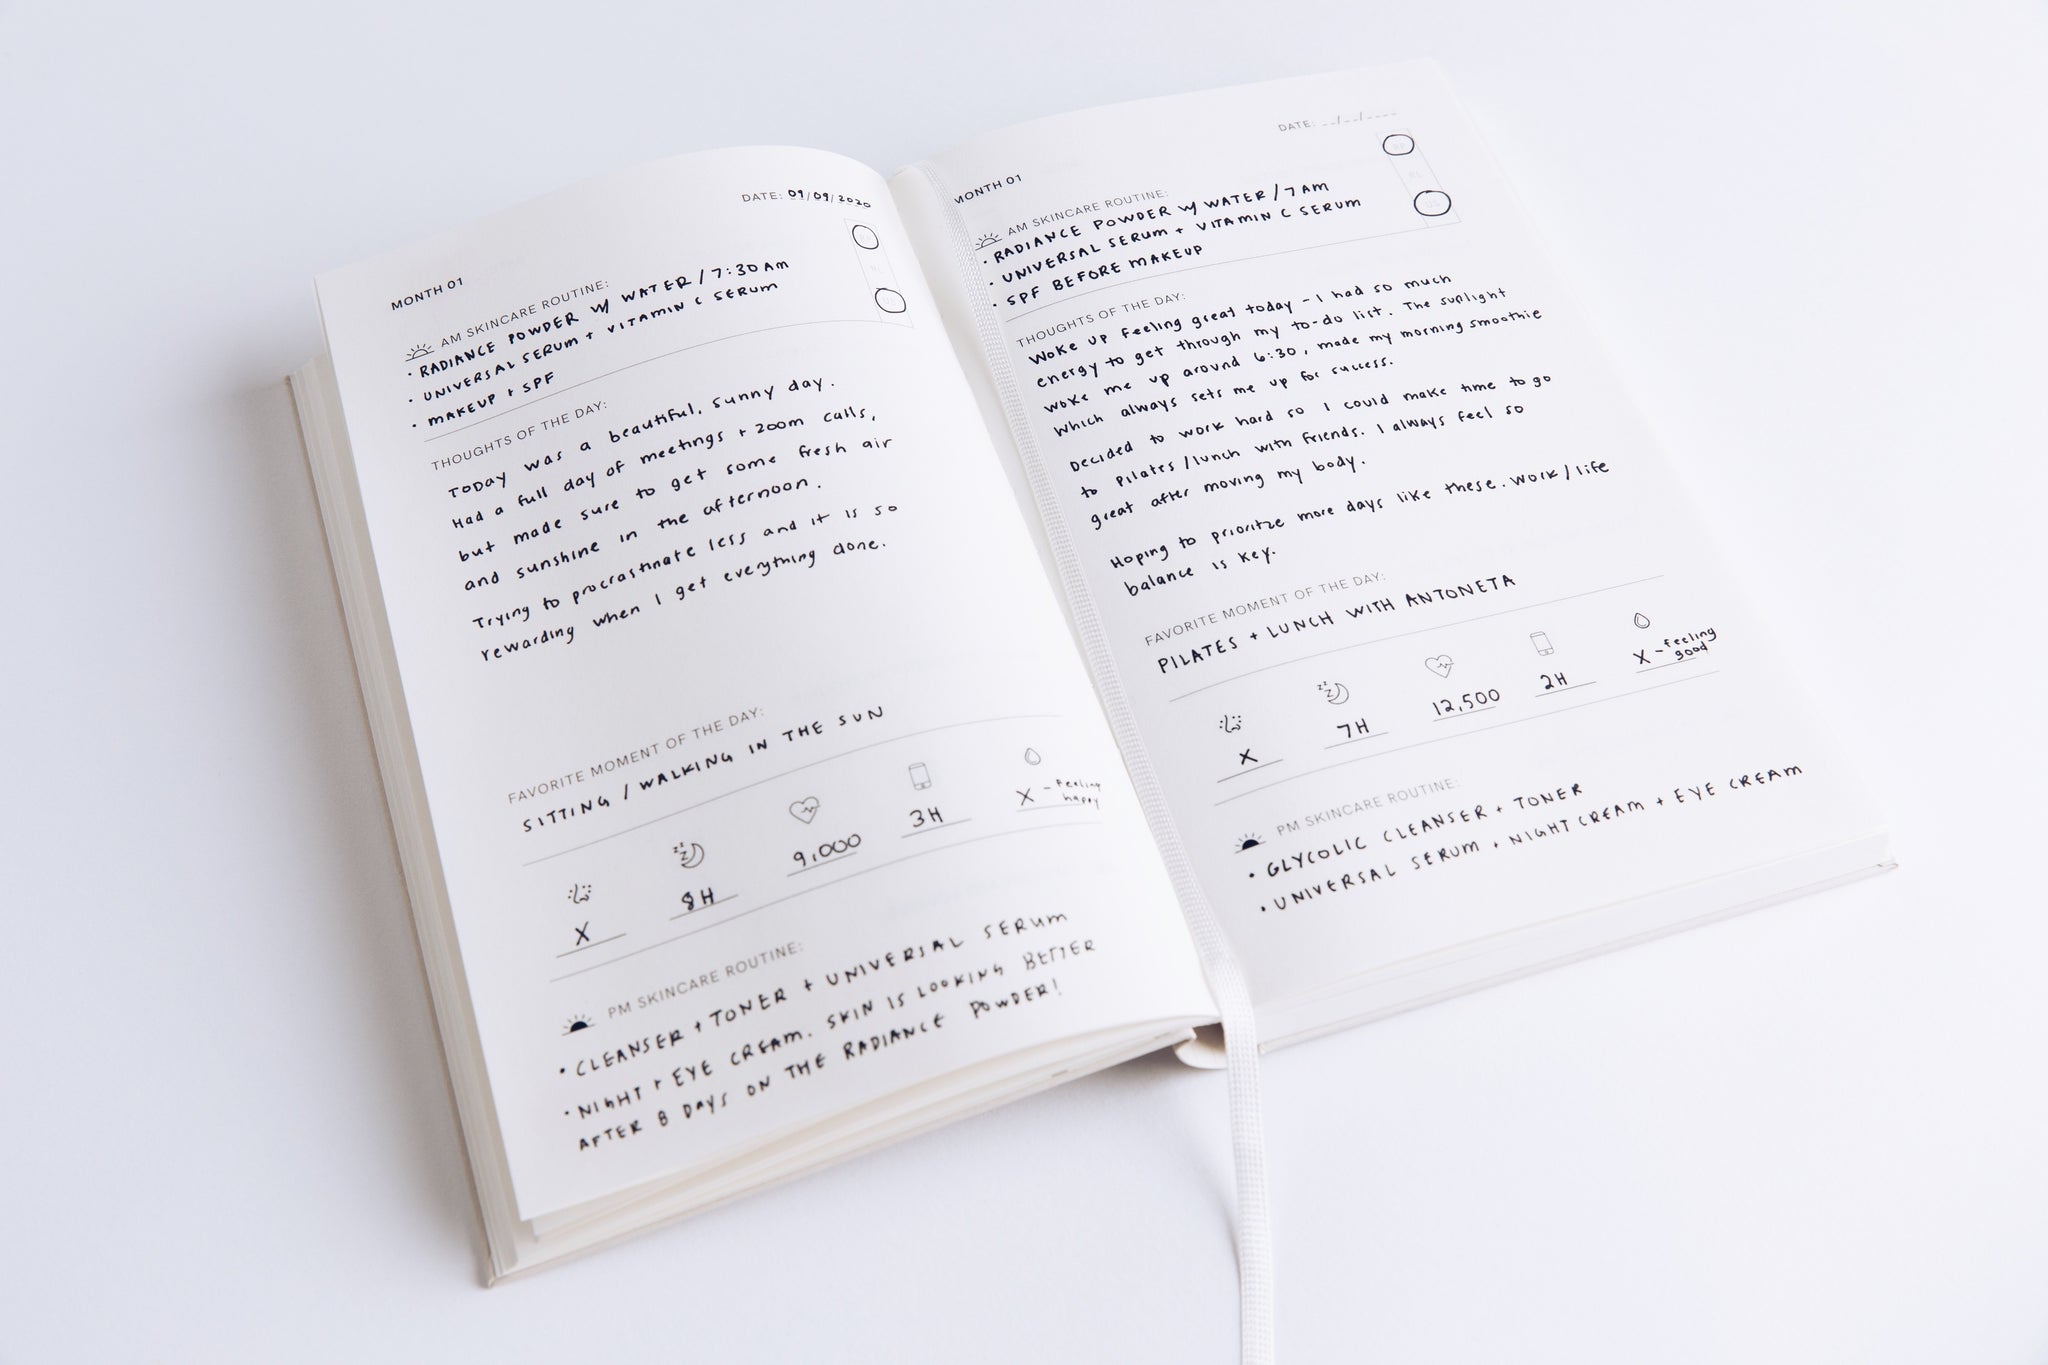 MONTH 01
DATE: 09/09/2020
AM SKINCARE ROUTINE:
• RADIANCE POWDER W/ WATER / 7:30 AM
• UNIVERSAL SERUM + VITAMIN C SERUM
• MAKEUP + SPF
THOUGHTS OF THE DAY:
TODAY was a beautiful, sunny day.
Had a full day of meetings + zoom calls,
but made sure to get some fresh air
and sunshine in the afternoon.
Trying to procrastinate less and it is so
rewarding when I get everything done.
FAVORITE MOMENT OF THE DAY:
SITTING / WALKING IN THE SUN
X
8H
9,000
3H
X - feeling
happy
PM SKINCARE ROUTINE:
• CLEANSER + TONER + UNIVERSAL SERUM
• NIGHT + EYE CREAM. SKIN IS LOOKING BETTER
AFTER 8 DAYS ON THE RADIANCE POWDER!
MONTH 01
DATE: __/__/____
AM SKINCARE ROUTINE:
• RADIANCE POWDER W/ WATER / 7 AM
• UNIVERSAL SERUM + VITAMIN C SERUM
• SPF BEFORE MAKEUP
THOUGHTS OF THE DAY:
Woke up feeling great today - I had so much
energy to get through my to-do list. The sunlight
woke me up around 6:30, made my morning smoothie
which always sets me up for success.
Decided to work hard so I could make time to go
to pilates / lunch with friends. I always feel so
great after moving my body.
Hoping to prioritize more days like these. Work / life
balance is key.
FAVORITE MOMENT OF THE DAY:
PILATES + LUNCH WITH ANTONETA
X
7H
12,500
2H
X - feeling
good
PM SKINCARE ROUTINE:
• GLYCOLIC CLEANSER + TONER
• UNIVERSAL SERUM + NIGHT CREAM + EYE CREAM